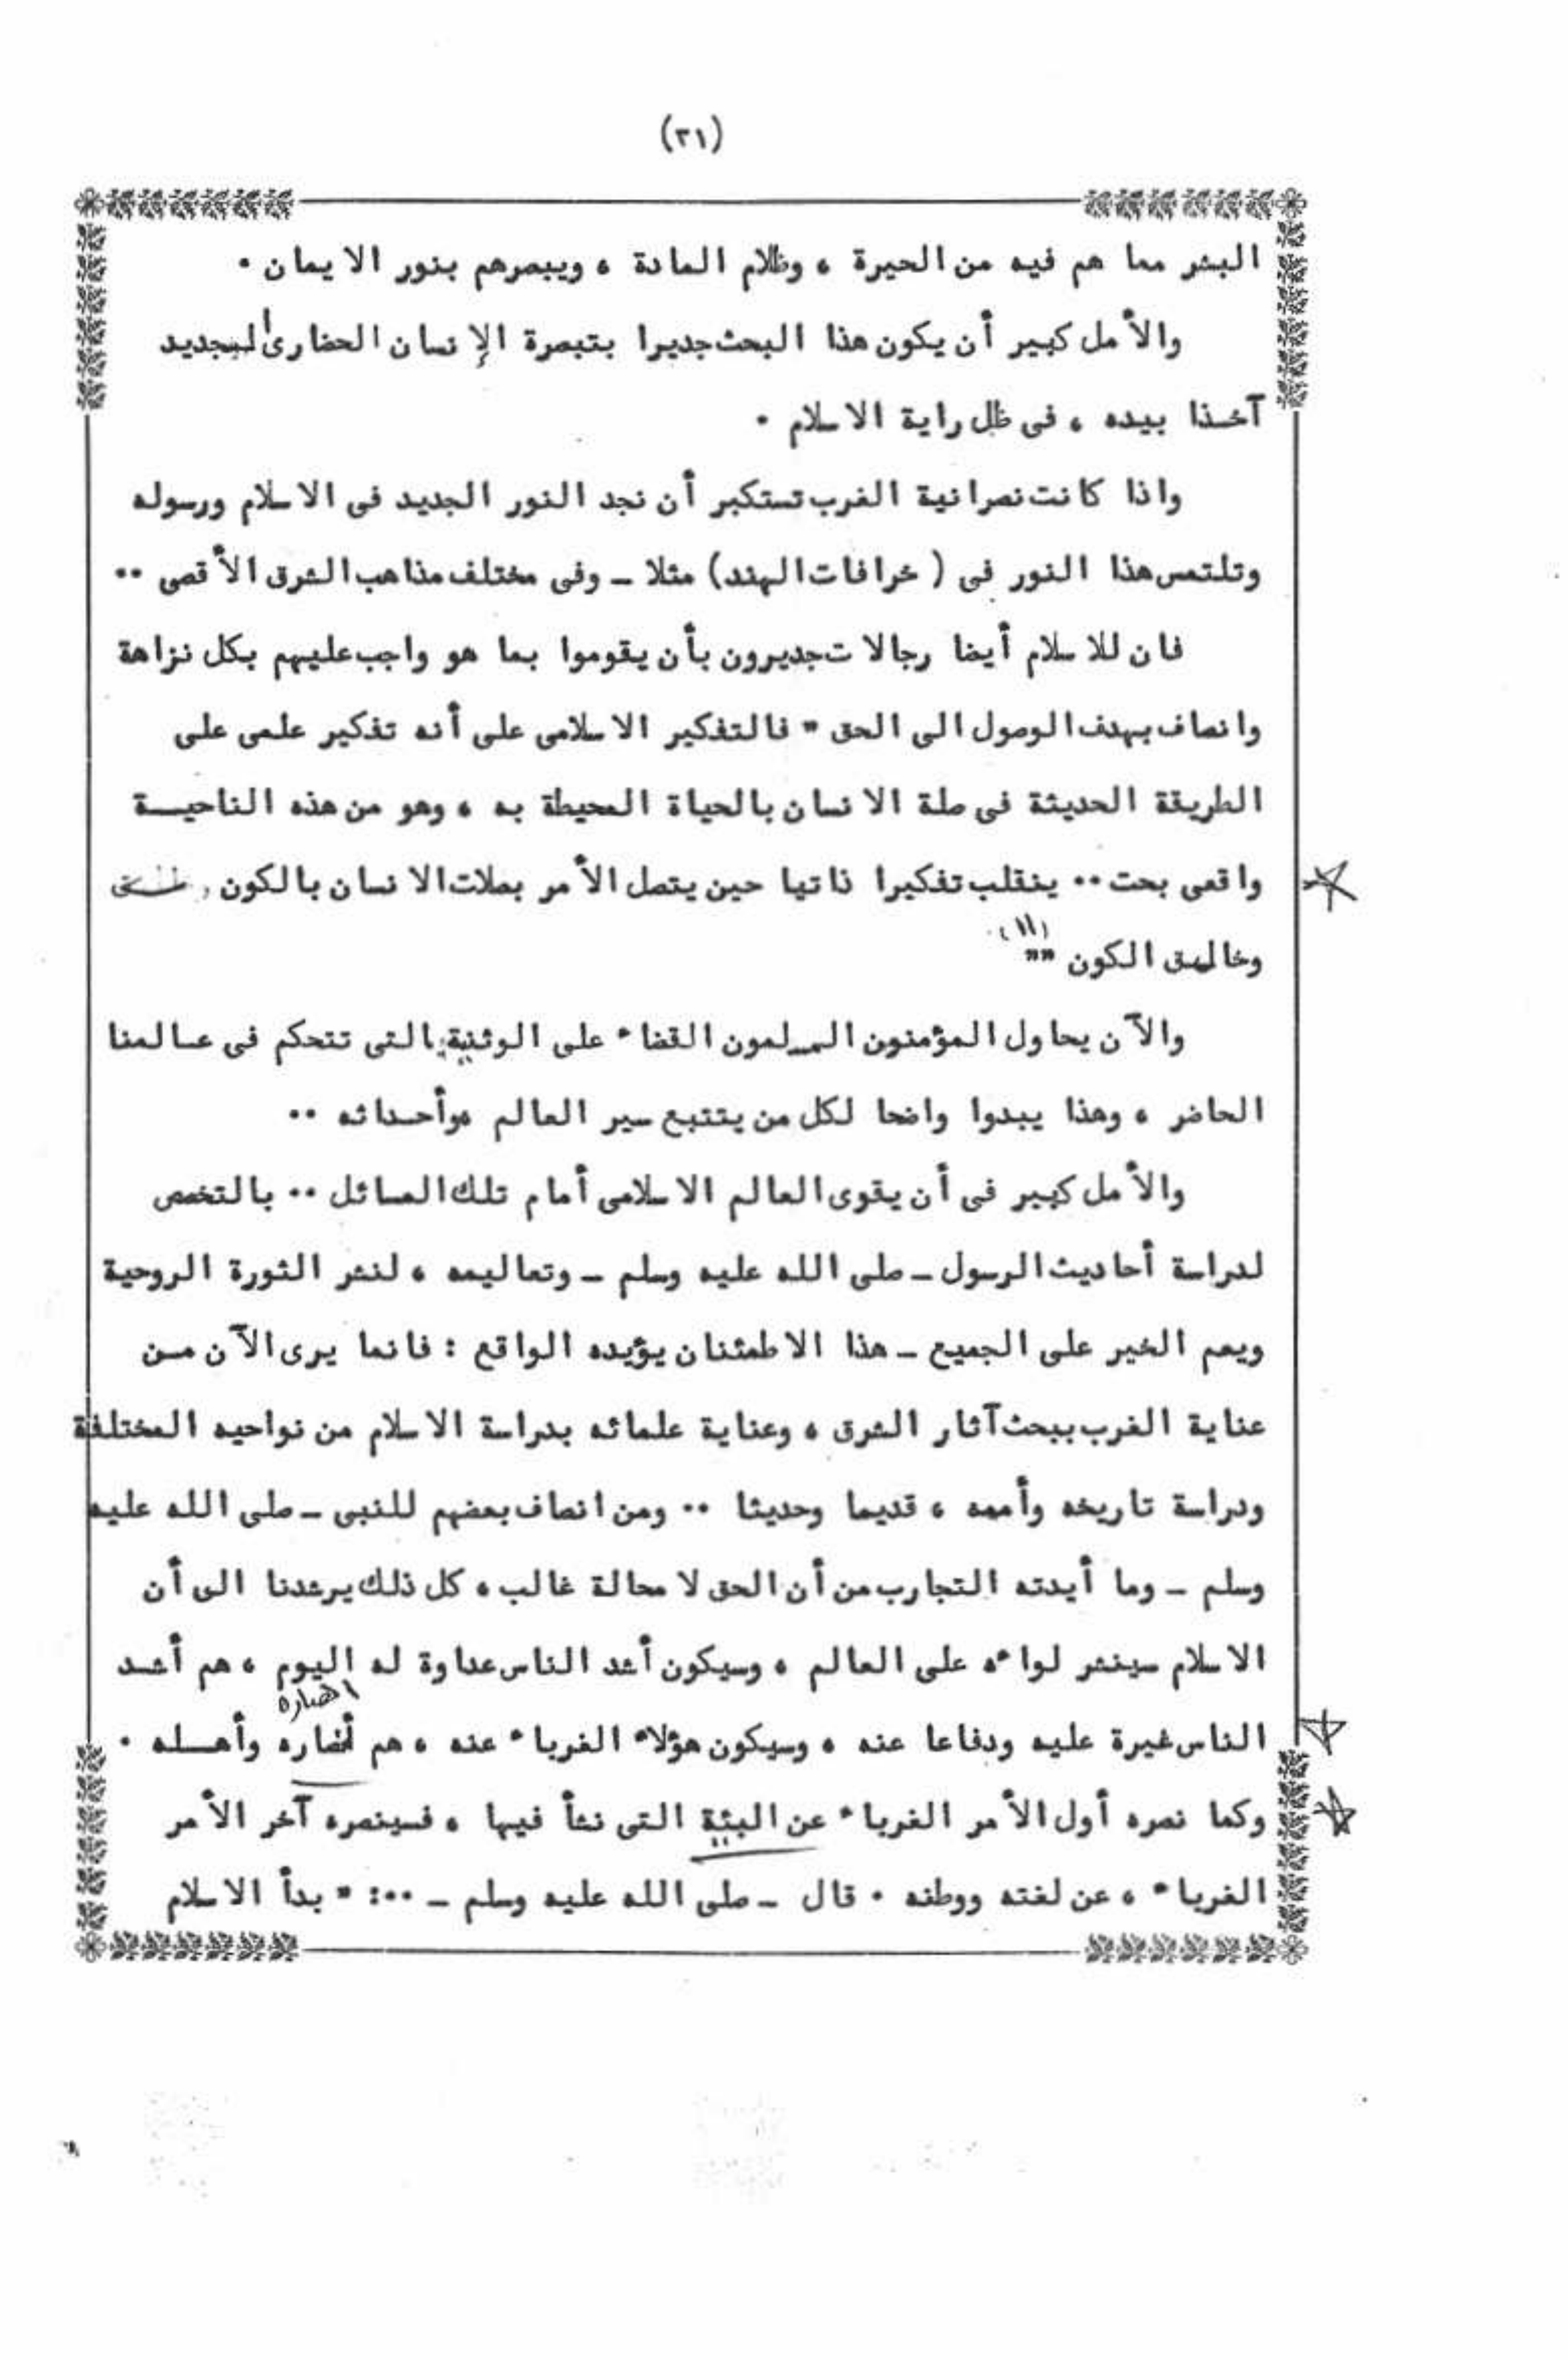 (٣١)
البشر مما هم فيه من الحيرة ، وظلام المادة ، ويبصرهم بنور الايمان .
والأمل كبير أن يكون هذا البحث جديرا بتبصرة الإنسان الحضارى الجديد
آخذا بيده ، فى ظل راية الاسلام .
واذا كانت نصرانية الغرب تستكبر أن نجد النور الجديد فى الاسلام ورسوله
وتلتمس هذا النور فى ( خرافات الهند) مثلا ـ وفى مختلف مذاهب الشرق الأقصى ..
فان للاسلام أيضا رجالات جديرون بأن يقوموا بما هو واجب عليهم بكل نزاهة
وانصاف بهدف الوصول الى الحق " فالتفكير الاسلامى على أنه تفكير علمى على
الطريقة الحديثة فى صلة الانسان بالحياة المحيطة به ، وهو من هذه الناحيــة
واقعى بحت .. ينقلب تفكيرا ذاتيا حين يتصل الأمر بصلات الانسان بالكون
وخالق الكون "" (١١)
والآن يحاول المؤمنون المسلمون القضاء على الوثنية التى تتحكم فى عالمنا
الحاضر ، وهذا يبدوا واضحا لكل من يتتبع سير العالم وأحداثه ..
والأمل كبير فى أن يقوى العالم الاسلامى أمام تلك المسائل .. بالتخصص
لدراسة أحاديث الرسول ـ صلى الله عليه وسلم ـ وتعاليمه ، لنشر الثورة الروحية
ويعم الخير على الجميع ـ هذا الاطمئنان يؤيده الواقع : فانما يرى الآن مـن
عناية الغرب ببحث آثار الشرق ، وعناية علمائه بدراسة الاسلام من نواحيه المختلفة
ودراسة تاريخه وأممه ، قديما وحديثا .. ومن انصاف بعضهم للنبى ـ صلى الله عليه
وسلم ـ وما أيدته التجارب من أن الحق لا محالة غالب ، كل ذلك يرشدنا الى أن
الاسلام سينشر لواءه على العالم ، وسيكون أشد الناس عداوة له اليوم ، هم أشـد
انصاره
الناس غيرة عليه ودفاعا عنه ، وسيكون هؤلاء الغرباء عنه ، هم أنصاره وأهـله .
وكما نصره أول الأمر الغرباء عن البيئة التى نشأ فيها ، فسينصره آخر الأمر
الغرباء ، عن لغته ووطنه . قال ـ صلى الله عليه وسلم ـ ..: " بدأ الاسلام